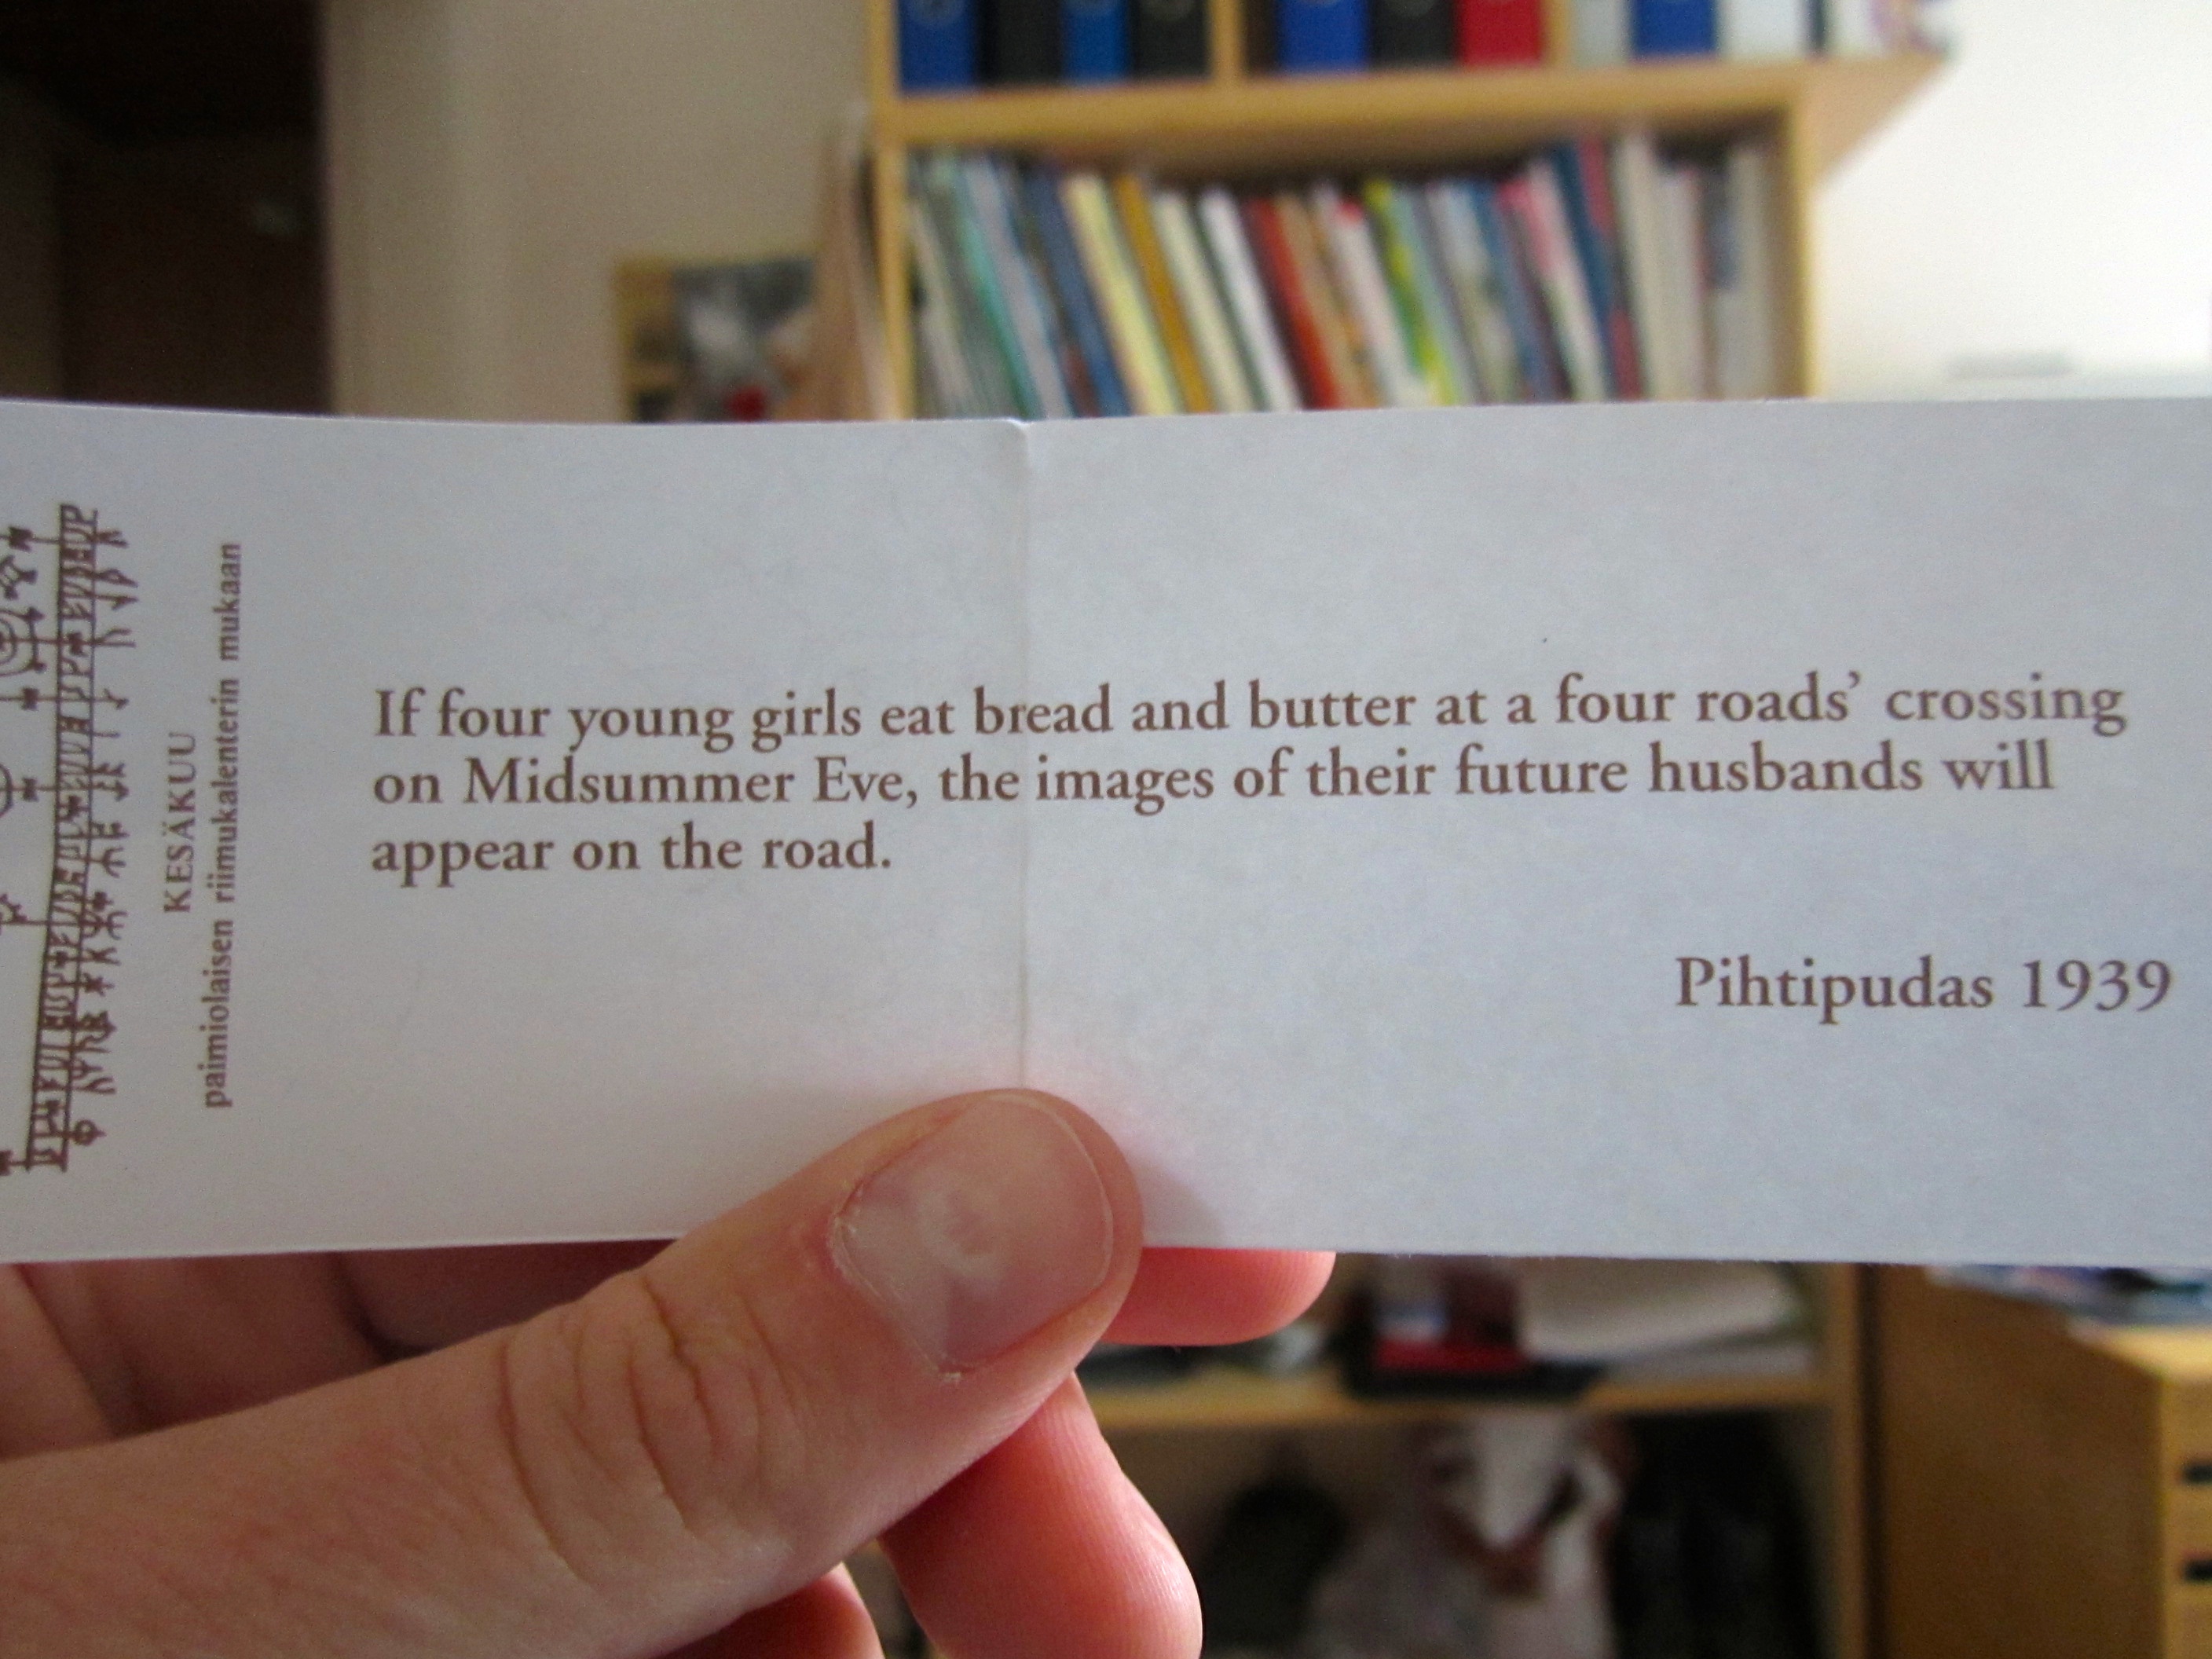 KESÄKUU
paimiolaisen riimukalenterin mukaan
If four young girls eat bread and butter at a four roads’ crossing
on Midsummer Eve, the images of their future husbands will
appear on the road.
Pihtipudas 1939